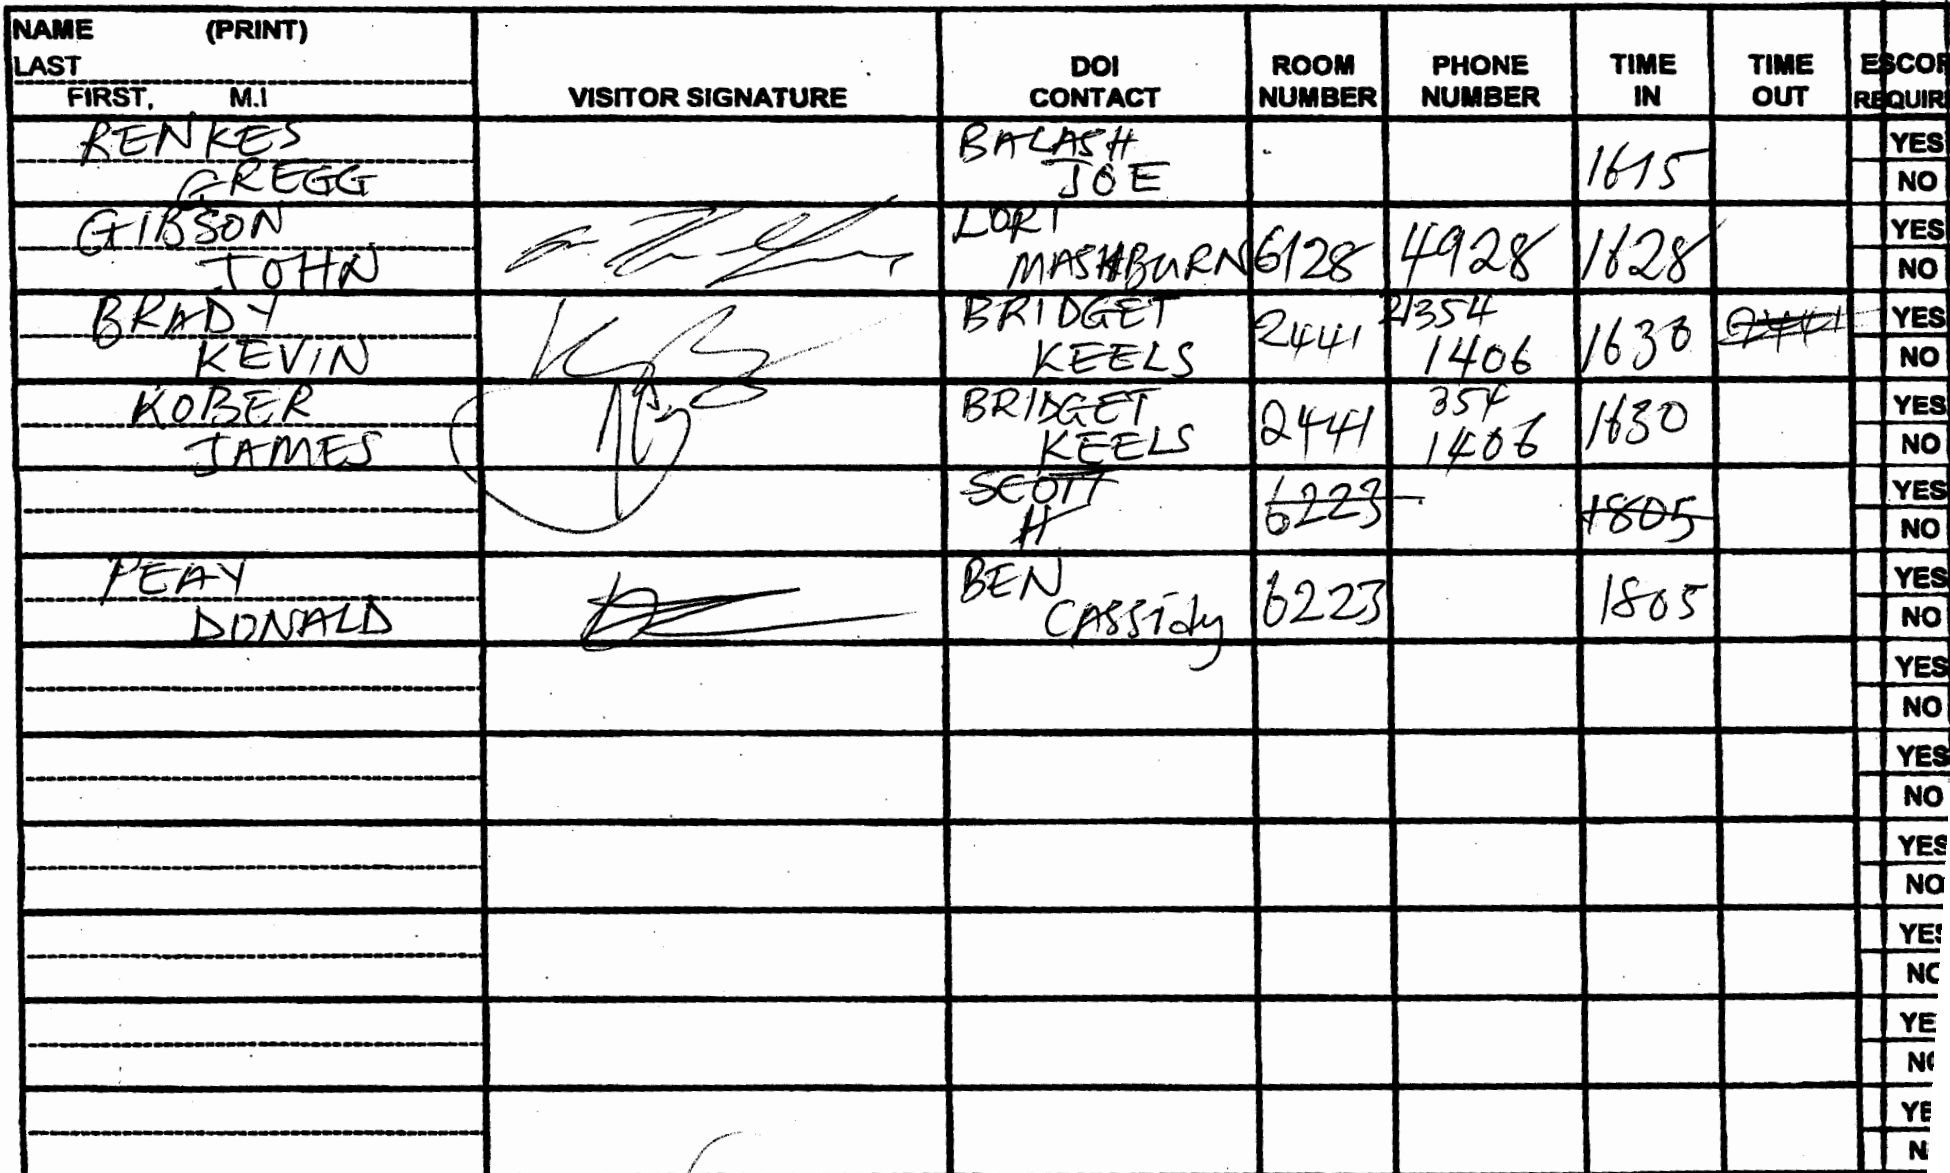 NAME (PRINT)
LAST
FIRST, M.I
VISITOR SIGNATURE
DOI
CONTACT
ROOM
NUMBER
PHONE
NUMBER
TIME
IN
TIME
OUT
ESCOR
REQUIR
RENKES
GREGG
BALASH
JOE
1615
YES
NO
GIBSON
JOHN
LORI
MASHBURN
6128
4928
1628
YES
NO
BRADY
KEVIN
BRIDGET
KEELS
2441
354
1406
1630
2441
YES
NO
KOBER
JAMES
BRIDGET
KEELS
2441
354
1406
1630
YES
NO
SCOTT
H
6223
1805
YES
NO
PEAY
DONALD
BEN
CASSIDY
6223
1805
YES
NO
YES
NO
YES
NO
YES
NO
YES
NO
YE
NO
YE
N